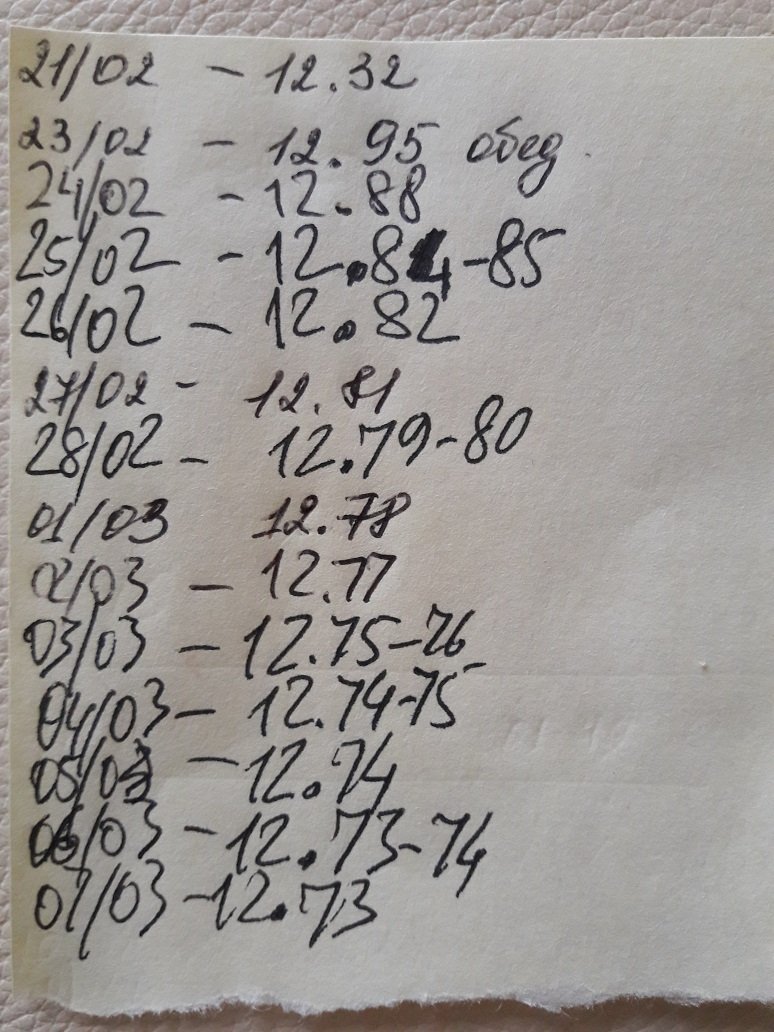 21/02 - 12.32
23/02 - 12.95 обед.
24/02 - 12.88
25/02 - 12.84-85
26/02 - 12.82
27/02 - 12.81
28/02 - 12.79-80
01/03 12.78
02/03 - 12.77
03/03 - 12.75-76
04/03 - 12.74-75
05/03 - 12.74
06/03 - 12.73-74
07/03 - 12.73